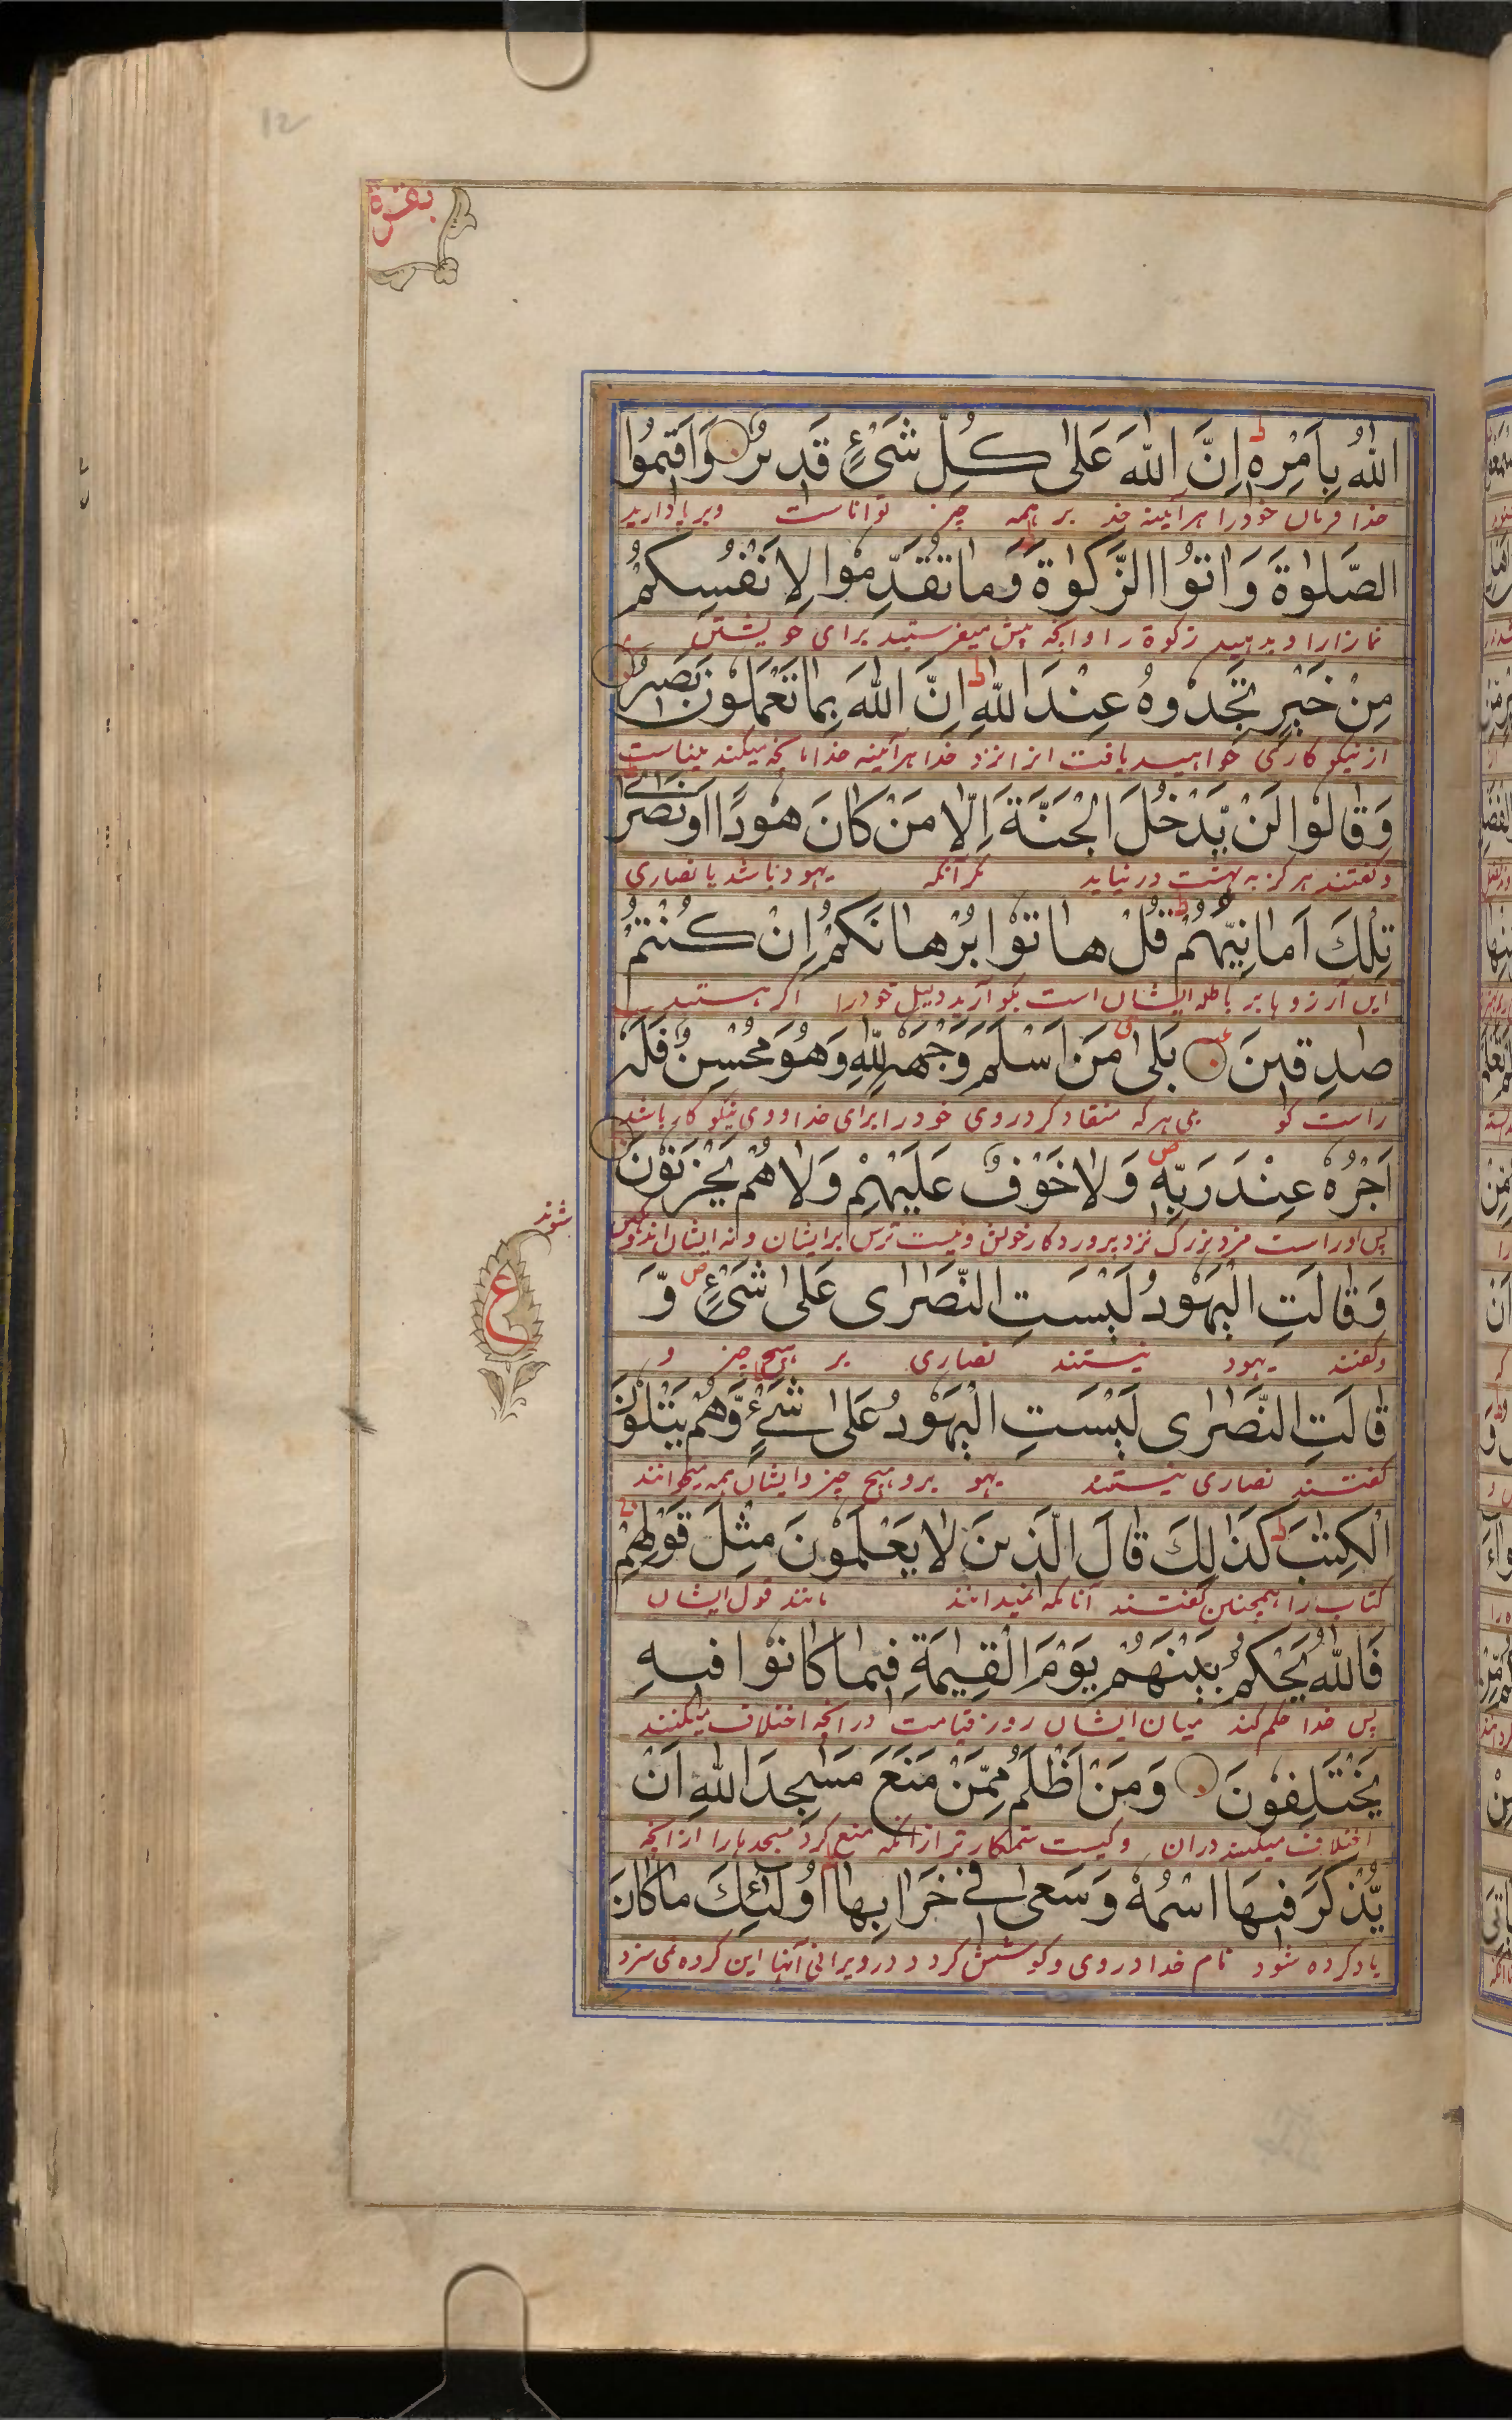 12
بقرة
اللّٰهُ بِاَمْرِهٖ ط اِنَّ اللّٰهَ عَلٰی كُلِّ شَیْءٍ قَدِیْرٌ وَاَقِیْمُوا
خدا فرمان خود را هرآئینه خدا بر همه چیز توانا است و برپا دارید
الصَّلٰوةَ وَ اٰتُوا الزَّكٰوةَ وَمَا تُقَدِّمُوْا لِاَنْفُسِكُمْ
نماز را و بدهید زکوة را و آنچه پیش میفرستید برای خویشتن
مِنْ خَیْرٍ تَجِدُوْهُ عِنْدَ اللّٰهِ ط اِنَّ اللّٰهَ بِمَا تَعْمَلُوْنَ بَصِیْرٌ
از نیکو کاری خواهید یافت انرا نزد خدا هرآئینه خدا بآنچه میکنید بیناست
وَقَالُوْا لَنْ یَّدْخُلَ الْجَنَّةَ اِلَّا مَنْ كَانَ هُوْدًا اَوْ نَصٰرٰی ط
و گفتند هرگز به بهشت در نیاید مگر آنکه یهود باشد یا نصاری
تِلْكَ اَمَانِیُّهُمْ ط قُلْ هَاتُوْا بُرْهَانَكُمْ اِنْ كُنْتُمْ
این آرزوهای باطله ایشان است بگو آرید دلیل خود را اگر هستید
صٰدِقِیْنَ بَلٰی مَنْ اَسْلَمَ وَجْهَهٗ لِلّٰهِ وَهُوَ مُحْسِنٌ فَلَهٗ
راست گو بلی هر که منقاد کرد روی خود را برای خدا و وی نیکو کار باشد
اَجْرُهٗ عِنْدَ رَبِّهٖ ص وَلَا خَوْفٌ عَلَیْهِمْ وَلَا هُمْ یَحْزَنُوْنَ
پس او راست مزد بزرگ نزد پروردگار خویش و نیست ترس بر ایشان و نه ایشان اندوهگین
شوند
ع
وَقَالَتِ الْیَهُوْدُ لَیْسَتِ النَّصٰرٰی عَلٰی شَیْءٍ ص وَّ
و گفتند یهود نیستند نصاری بر هیچ چیز و
قَالَتِ النَّصٰرٰی لَیْسَتِ الْیَهُوْدُ عَلٰی شَیْءٍ وَّهُمْ یَتْلُوْنَ
گفتند نصاری نیستند یهو بر هیچ چیز و ایشان همه میخوانند
الْكِتٰبَ ط كَذٰلِكَ قَالَ الَّذِیْنَ لَا یَعْلَمُوْنَ مِثْلَ قَوْلِهِمْ
کتاب را همچنین گفتند آنانکه نمیدانند مانند قول ایشان
فَاللّٰهُ یَحْكُمُ بَیْنَهُمْ یَوْمَ الْقِیٰمَةِ فِیْمَا كَانُوْا فِیْهِ
پس خدا حکم کند میان ایشان روز قیامت در آنچه اختلاف میکنند
یَخْتَلِفُوْنَ وَمَنْ اَظْلَمُ مِمَّنْ مَنَعَ مَسٰجِدَ اللّٰهِ اَنْ
اختلاف میکنند دران و کیست ستمکارتر از آنکه منع کرد مسجدها را از آنچه
یُّذْكَرَ فِیْهَا اسْمُهٗ وَسَعٰی فِیْ خَرَابِهَا اُولٰٓئِكَ مَا كَانَ
یاد کرده شود نام خدا در وی و کوشش کرد در ویرانی آنها این گروه نمی سزد